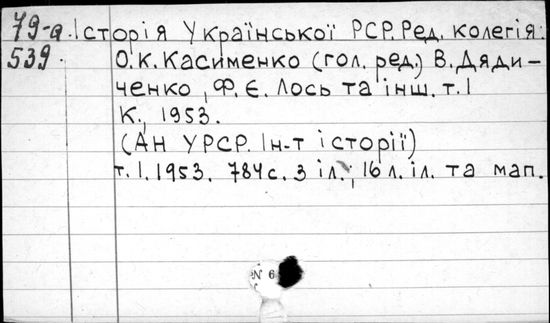 79-а. Історія Української РСР. Ред. колегія:
539. О.К. Касименко (гол. ред.) В. Дяди-
ченко, Ф.Є. Лось та інш. т. I
К., 1953.
(АН УРСР. Ін-т історії)
т. I. 1953. 784 с. з іл.; 16 л. іл. та мап.
N 6